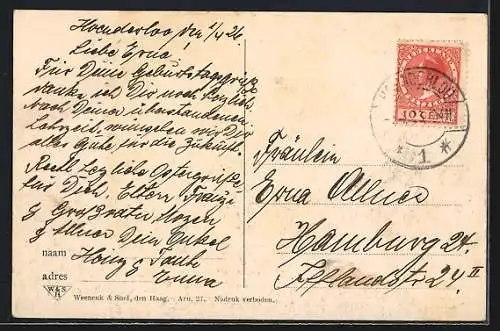 Hoenderloo den 1/4 26.
Liebe Erna!
Für Deine Geburtstagsgrüße
danke ich Dir noch herzlich
Nach Deiner überstandenen
Lehrzeit, wünschen wir Dir
alles Gute für die Zukunft.
Recht herzliche Ostergrüße
für Dich Eltern
& Großvater
& Allner Dein Onkel
& Tante
Erna
naam
adres
W&S
H
Weenenk & Snel, den Haag. Arn. 27. Nadruk verboden.
NEDERLAND
10 CENT
HOENDERLOO
* 1 *
Fräulein
Erna Allner
Hamburg 24.
Ifflandstr 24 II